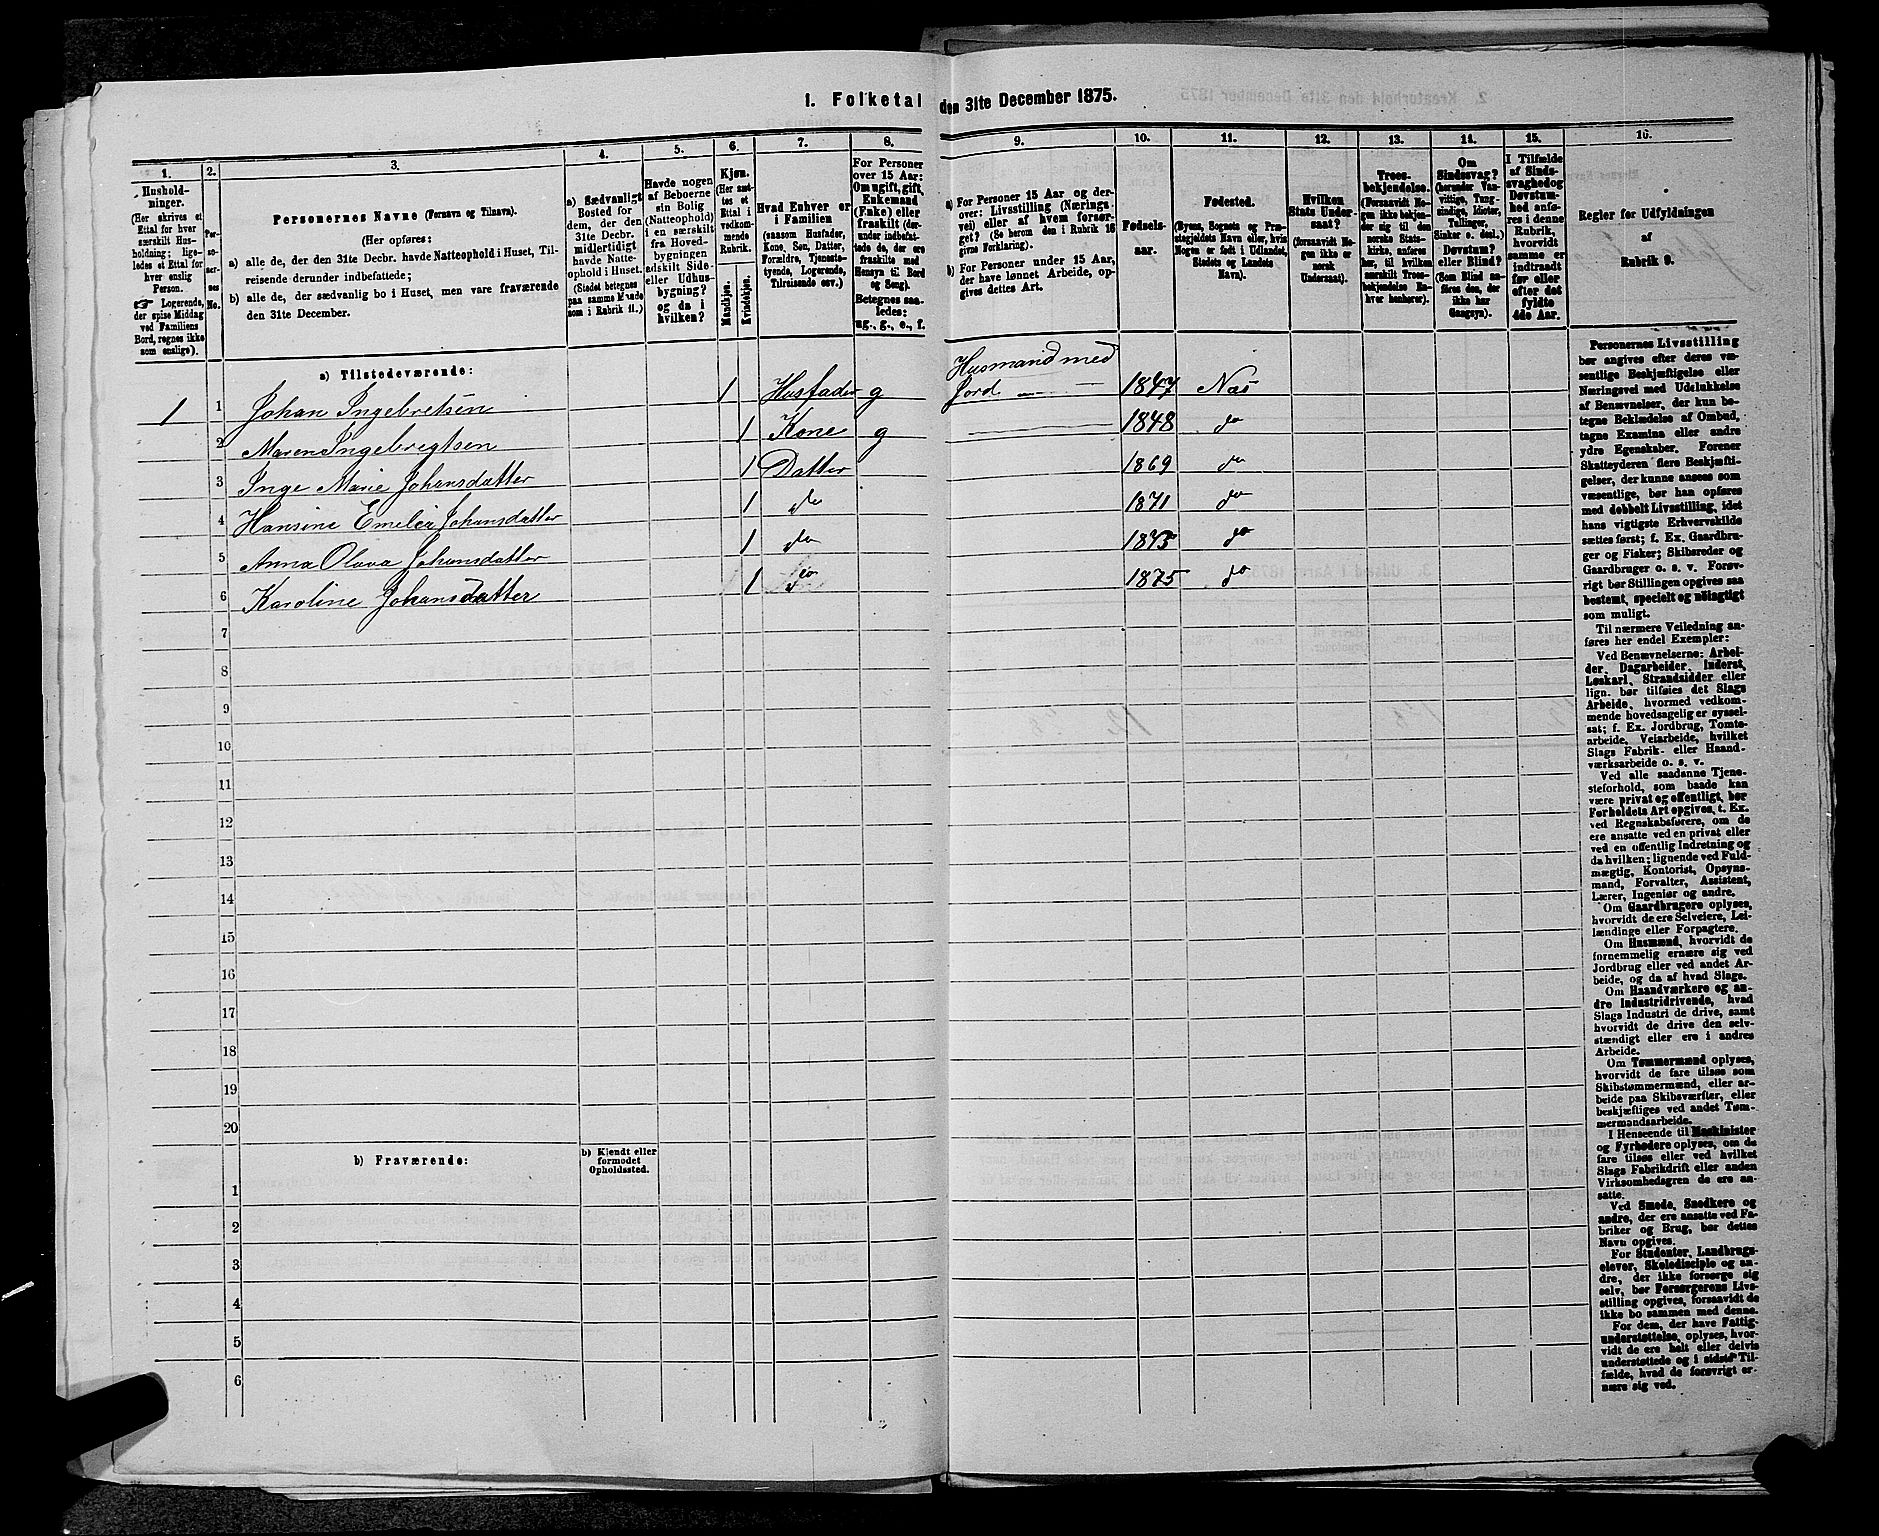 1. Folketal den 31te December 1875.
1.
2.
3.
4.
5.
6.
7.
8.
9.
10.
11.
12.
13.
14.
15.
16.
Hushold-
ninger.
(Her skrives et
Ettal for hver
særskilt Hus-
holdning; lige-
ledes et Ettal for
hver enslig
Person.
☞ Logerende,
der spise Middag
ved Familiens
Bord, regnes ikke
som enslige).
Per-
so-
ner-
nes
No.
Personernes Navne (Fornavn og Tilnavn).
(Her opføres:
a) alle de, der den 31te Decbr. havde Natteophold i Huset, Til-
reisende derunder indbefattede;
b) alle de, der sædvanlig bo i Huset, men vare fraværende
den 31te December.
a) Sædvanligt
Bosted for
dem, der den
31te Decbr.
midlertidigt
havde Natte-
ophold i Huset.
(Stedet betegnes
paa samme Maade
som i Rubrik 11.)
Havde nogen
af Beboerne
sin Bolig
(Natteophold)
i en særskilt
fra Hoved-
bygningen
adskilt Side-
eller Udhus-
bygning?
og da i
hvilken?
Kjøn.
(Her sæt-
tes et
Ettal i
vedkom-
mende
Rubrik.
Mandkjøn.
Kvindekjøn.
Hvad Enhver er
i Familien
(saasom Husfader,
Kone, Søn, Datter,
Forældre, Tjeneste-
tyende, Logerende,
Tilreisende osv.)
For Personer
over 15 Aar:
Om ugift, gift,
Enkemand
(Enke) eller
fraskilt (der-
under indbefat-
tede de, der ere
fraskilte med
Hensyn til Bord
og Seng).
Betegnes saa-
ledes:
ug., g., e., f.
a) For Personer 15 Aar og der-
over: Livsstilling (Nærings-
vei) eller af hvem forsør-
get? (Se herom den i Rubrik 16
givne Forklaring).
b) For Personer under 15 Aar,
der have lønnet Arbeide, op-
gives dettes Art.
Fødsels-
aar.
Fødested.
(Byens, Sognets og Præ-
stegjeldets Navn eller, hvis
Nogen er født i Udlandet,
Stedets og Landets
Navn).
Hvilken
Stats Under-
saat?
(forsaavidt No-
gen ikke er
norsk
Undersaat).
Troes-
bekjendelse.
(Forsaavidt No-
gen ikke bekjen-
der sig til den
norske Stats-
kirke, anføres
her, til hvilken
særskilt Troes-
bekjendelse En-
hver henhører).
Om
Sindssvag?
(herunder Van-
vittige, Tung-
sindige, Idioter,
Tullinger,
Sinker o. desl.)
Døvstum?
eller Blind?
(Som Blind an-
føres den, der
ikke har
Gangsyn).
I Tilfælde
af Sinds-
svaghed og
Døvstum-
hed anfø-
res i denne
Rubrik,
hvorvidt
samme er
indtraadt
før eller
efter det
fyldte
4de Aar.
Regler for Udfyldningen
af
Rubrik 9.
a) Tilstedeværende:
1 1 Johan Ingebretsen 1 Husfader g Husmand med
Jord 1847 Næs
2 Maren Ingebrigtsen 1 Kone g 1848 do
3 Inge Marie Johansdatter 1 Datter 1869 do
4 Hansine Emelie Johansdatter 1 do 1871 do
5 Anna Olava Johansdatter 1 do 1873 do
6 Karoline Johansdatter 1 do 1875 do
7
8
9
10
11
12
13
14
15
16
17
18
19
20
b) Fraværende:
b) Kjendt eller
formodet
Opholdssted.
1
2
3
4
5
6
Personernes Livsstilling
bør angives efter deres væ-
sentlige Beskjæftigelse eller
Næringsvei med Udelukkelse
af Benævnelser, der kun be-
tegne Beklædelse af Ombud,
tagne Examina eller andre
ydre Egenskaber. Forener
Skatteyderen flere Beskjæfti-
gelser, der kunne ansees som
væsentlige, bør han opføres
med dobbelt Livsstilling, idet
hans vigtigste Erhvervskilde
sættes først; f. Ex. Gaardbru-
ger og Fisker; Skibsreder og
Gaardbruger o. s. v. Forøv-
rigt bør Stillingen opgives saa
bestemt, specielt og nöiagtigt
som muligt.
Til nærmere Veiledning an-
føres her endel Exempler:
Ved Benævnelserne: Arbei-
der, Dagarbeider, Inderst,
Løskarl, Strandsidder eller
lign. bør tilføies det Slags
Arbeide, hvormed vedkom-
mende hovedsagelig er syssel-
sat; f. Ex. Jordbrug, Tomte-
arbeide, Veiarbeide, hvilket
Slags Fabrik- eller Haand-
værksarbeide o. s. v.
Ved alle saadanne Tjene-
steforhold, som baade kan
være privat og offentligt, bør
Forholdets Art opgives, t. Ex.
ved Regnskabsførere, om de
ere ansatte ved en privat eller
ved en offentlig Indretning og
da hvilken; lignende ved Fuld-
mægtig, Kontorist, Opsyns-
mand, Forvalter, Assistent,
Lærer, Ingeniør og andre.
Om Gaardbrugere oplyses,
hvorvidt de ere Selveiere, Lei-
lændinge eller Forpagtere.
Om Husmænd, hvorvidt de
fornemmelig ernære sig ved
Jordbrug eller ved andet Ar-
beide, og da af hvad Slags.
Om Haandværkere og an-
dre Industridrivende, hvad
Slags Industri de drive, samt
hvorvidt de drive den selv-
stændigt eller ere i andres
Arbeide.
Om Tømmermænd oplyses,
hvorvidt de fare tilsøs som
Skibstømmermænd, eller ar-
beide paa Skibsværfter, eller
beskjæftiges ved andet Tøm-
mermandsarbeide.
I Henseende til Maskinister
og Fyrbødere oplyses, om de
fare tilsøs eller ved hvilket
Slags Fabrikdrift eller anden
Virksomhedsgren de ere an-
satte.
Ved Smede, Snedkere og
andre, der ere ansatte ved Fa-
briker og Brug, bør dettes
Navn opgives.
For Studenter, Landbrugs-
elever, Skoledisciple og an-
dre, der ikke forsørge sig
selv, bør Forsørgerens Livs-
stilling opgives, forsaavidt de
ikke bo sammen med denne.
For dem, der have Fattig-
understøttelse, oplyses, hvor-
vidt de ere helt eller delvis
understøttede og i sidste Til-
fælde, hvad de forøvrigt er-
nære sig ved.